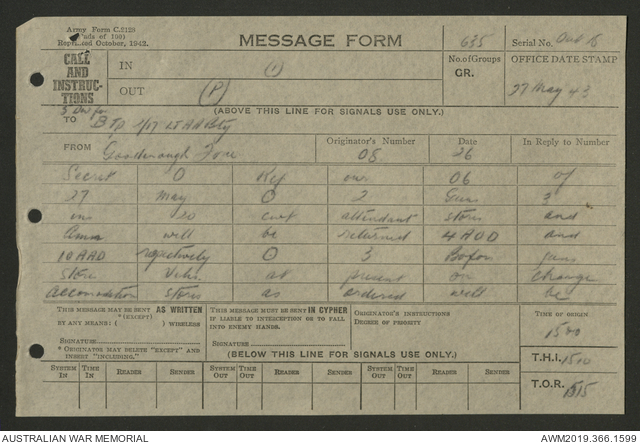 Army Form C.2128
(Pads of 100)
Reprinted October, 1942.
MESSAGE FORM
635
Serial No. Out 6
CALL AND INSTRUCTIONS
IN
(1)
No. of Groups
GR.
OFFICE DATE STAMP
OUT
(P)
27 May 43
(ABOVE THIS LINE FOR SIGNALS USE ONLY.)
TO B Tp 2/17 Lt AA Bty
FROM
Goodenough Force
Originator's Number
08
Date
26
In Reply to Number
Secret O Ref our 06 of
27 May O 2 Guns 3
ins 20 cwt attendant stores and
Amn will be returned 4 AOD and
10 AAD repectively O 3 Bofors guns
Stores at present on change
accomodation stores as ordered will be
THIS MESSAGE MAY BE SENT AS WRITTEN
*(EXCEPT)
BY ANY MEANS: ( ) WIRELESS
SIGNATURE
* ORIGINATOR MAY DELETE "EXCEPT" AND INSERT "INCLUDING."
THIS MESSAGE MUST BE SENT IN CYPHER
IF LIABLE TO INTERCEPTION OR TO FALL
INTO ENEMY HANDS.
SIGNATURE
ORIGINATOR'S INSTRUCTIONS
DEGREE OF PRIORITY
TIME OF ORIGIN
1500
(BELOW THIS LINE FOR SIGNALS USE ONLY.)
T.H.I. 1510
SYSTEM IN
TIME IN
READER
SENDER
SYSTEM OUT
TIME OUT
READER
SENDER
SYSTEM OUT
TIME OUT
READER
SENDER
T.O.R. 1515
AUSTRALIAN WAR MEMORIAL
AWM2019.366.1599